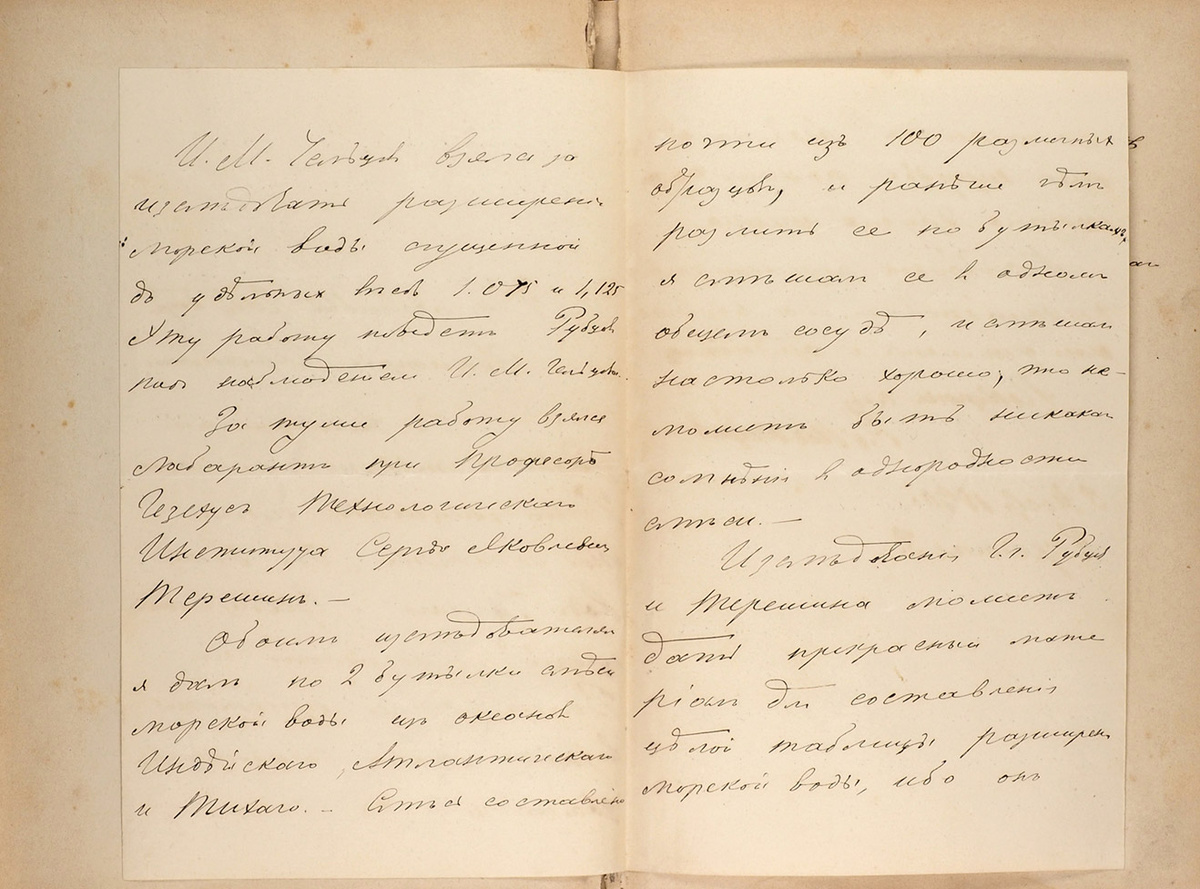 И. М. Чельцов взялся за
изслѣдовать разширенi
морской воды сгущенной
до удѣльных вѣсов 1.075 и 1,125
Эту работу поведетъ Рубцов
под наблюденiем И. М. Чельцова.
За туже работу взялся
лаборантъ при Професорѣ
Гезехусъ Технологическаго
Института Сергѣй Яковлевич
Терешинъ. —
Обоим изслѣдователям
я дал по 2 бутылки смѣси
морской воды из океанов
Индѣйскаго, Атлантическаго
и Тихаго. — Смѣсь составлена
почти изъ 100 различных
образцов, и раньше чѣм
разлить ее по бутылкамъ,
я смѣшал ее в одном
общем сосудѣ, и смѣшал
настолько хорошо, что не-
может быть никакаго
сомнѣнiя в однородности
смѣси. —
Изслѣдованiя Г.г. Рубцова
и Терешина может
дать прекрасный мате
рiал для составленiя
цѣлой таблицы разширен
морской воды, ибо он